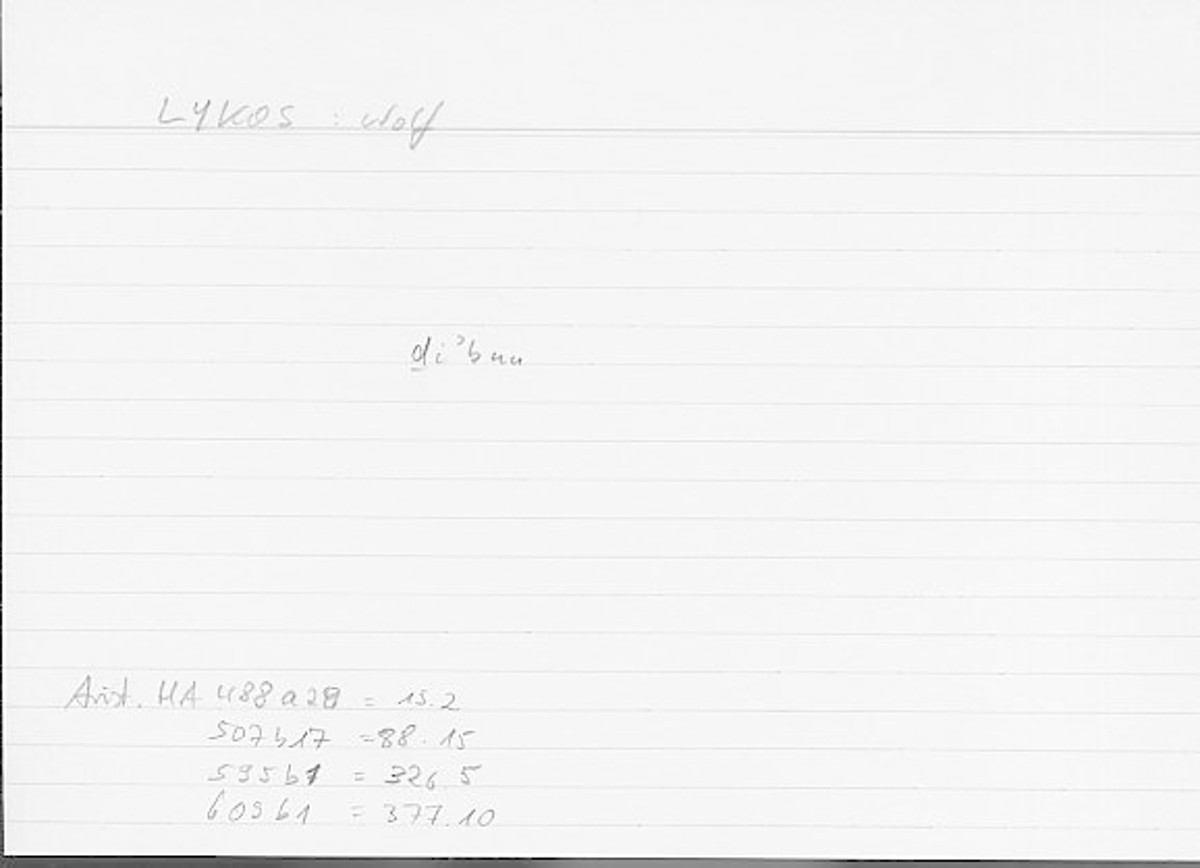 LYKOS : Wolf
ḏiʾbun
Arist. HA 488a28 = 15.2
507b17 = 88.15
595b1 = 326.5
609b1 = 377.10